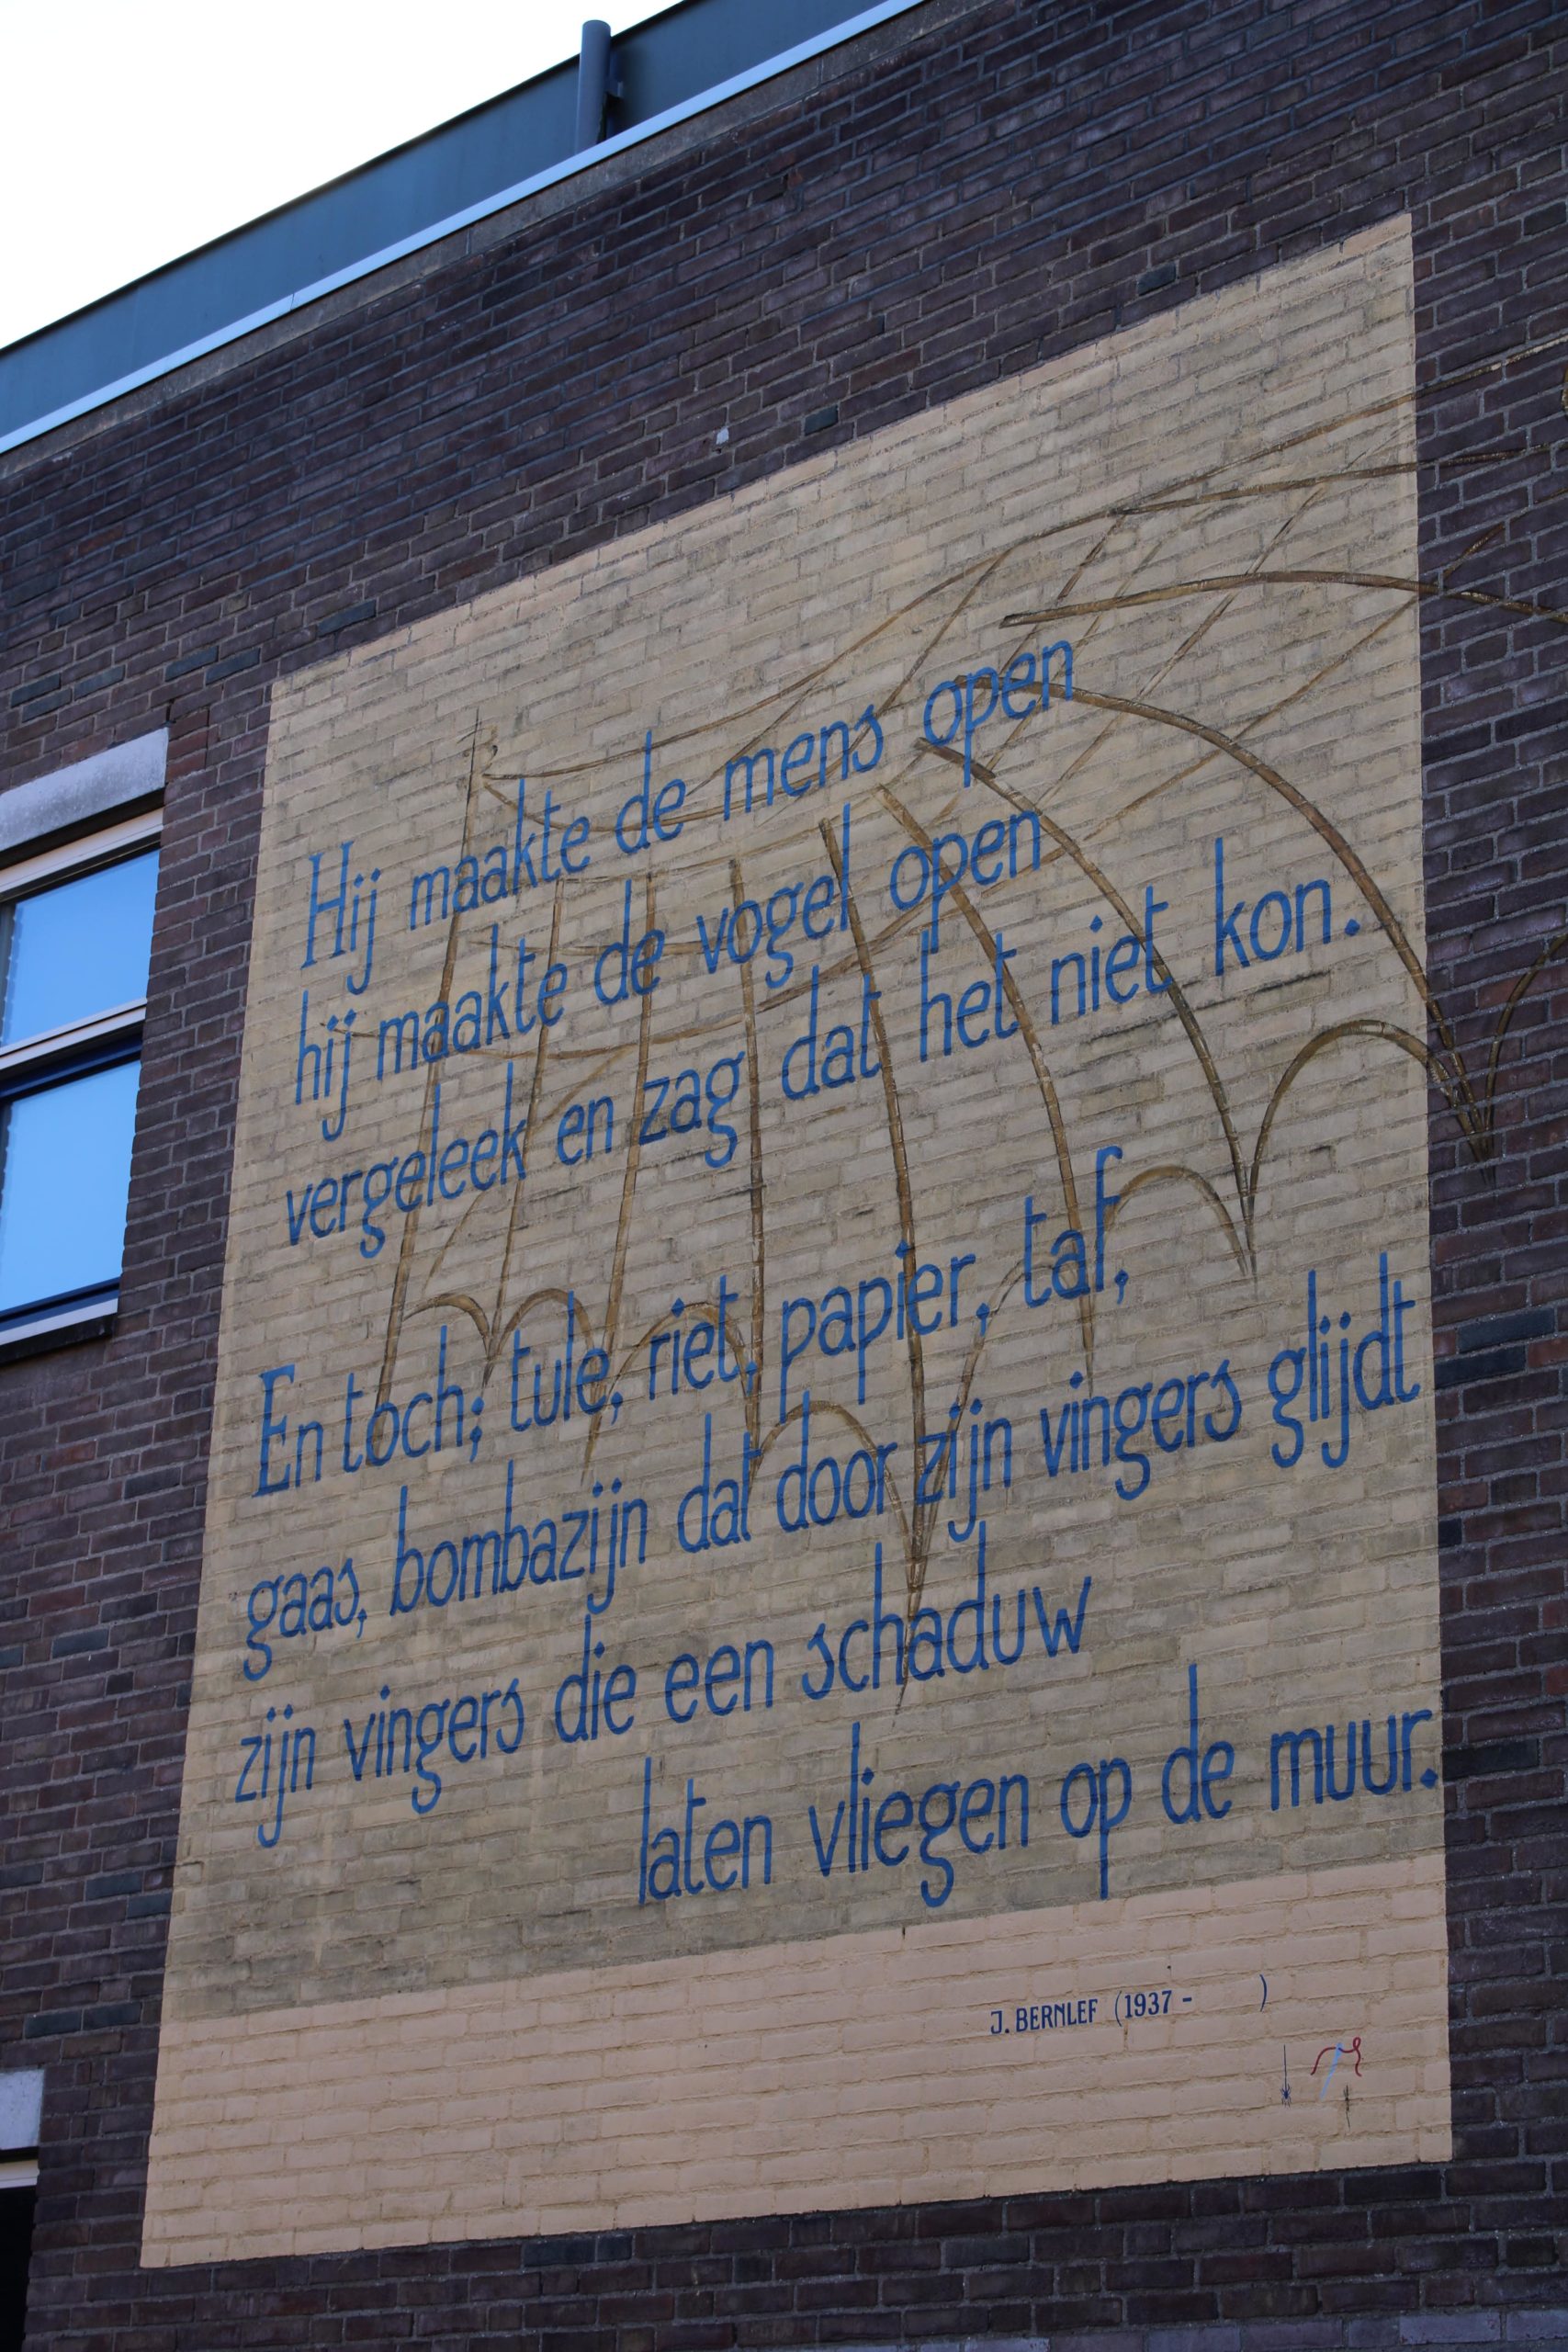 Hij maakte de mens open
hij maakte de vogel open
vergeleek en zag dat het niet kon.
En toch; tule, riet, papier, taf,
gaas, bombazijn dat door zijn vingers glijdt
zijn vingers die een schaduw
laten vliegen op de muur.
J. BERNLEF (1937 - )